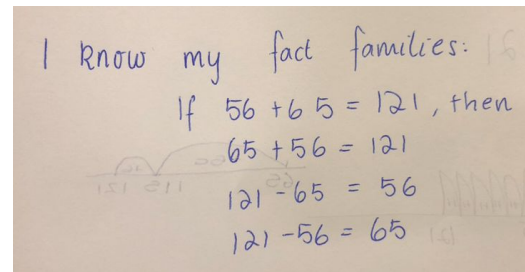 I know my fact families:
If 56 + 65 = 121, then
65 + 56 = 121
121 - 65 = 56
121 - 56 = 65